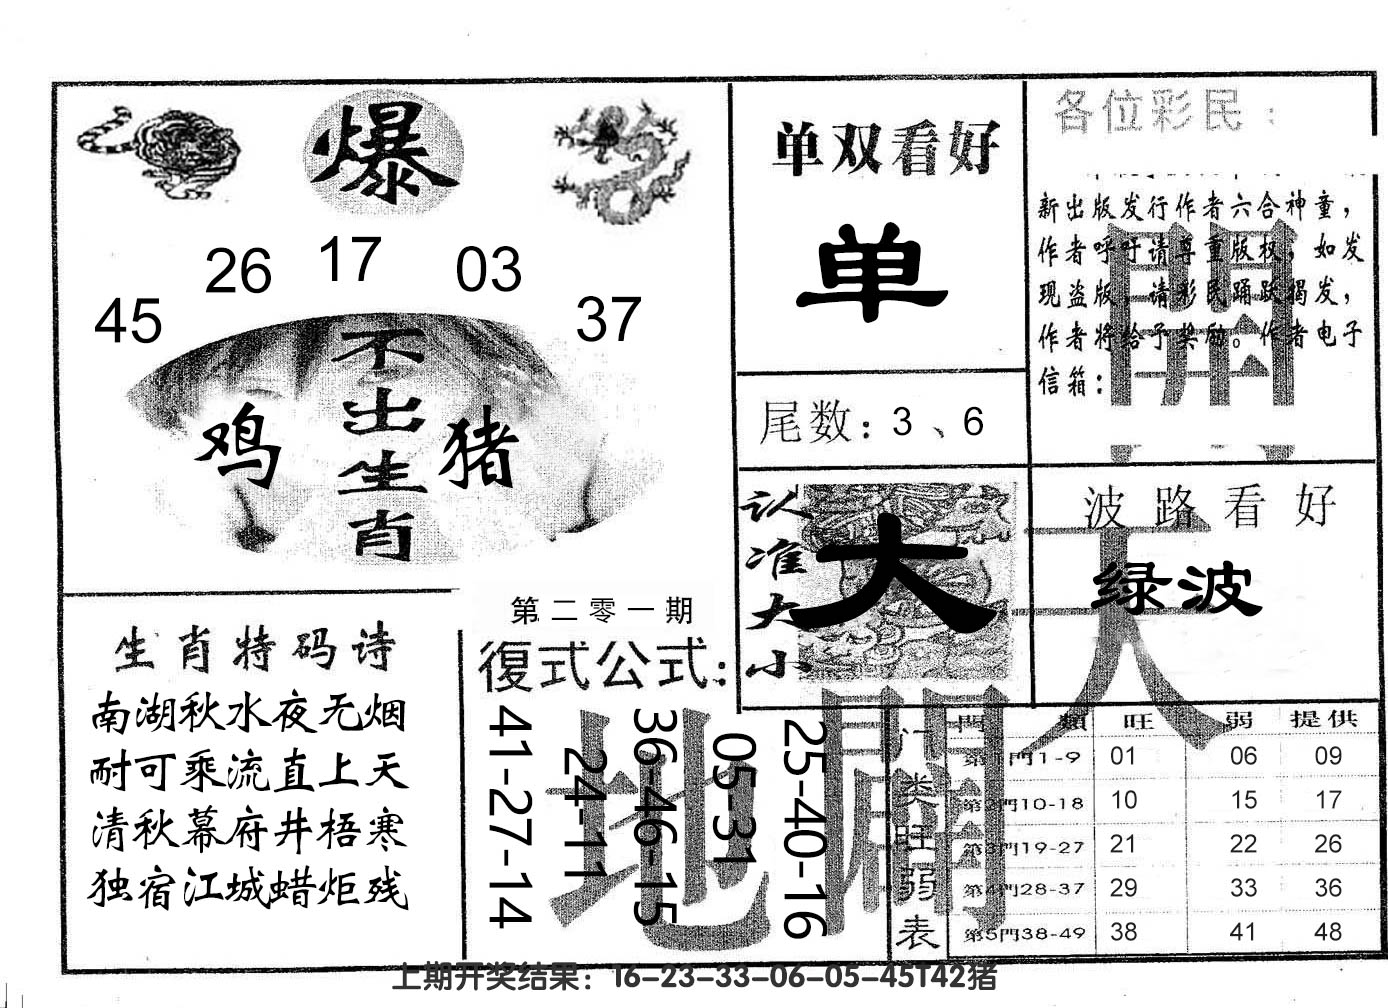 爆
45 26 17 03 37
不出生肖
鸡 猪
单双看好
单
尾数：3、6
认准大小
大
各位彩民：
新出版发行作者六合神童，
作者呼吁请尊重版权，如发
现盗版，请彩民踊跃揭发，
作者将给予奖励。作者电子
信箱：
開
波路看好
绿波
天
生肖特码诗
南湖秋水夜无烟
耐可乘流直上天
清秋幕府井梧寒
独宿江城蜡炬残
第二零一期
復式公式：
41-27-14
24-11
36-46-15
05-31
25-40-16
地
門类旺弱表
門類 旺 弱 提供
第1門1-9 01 06 09
第2門10-18 10 15 17
第3門19-27 21 22 26
第4門28-37 29 33 36
第5門38-49 38 41 48
上期开奖结果：16-23-33-06-05-45T42猪